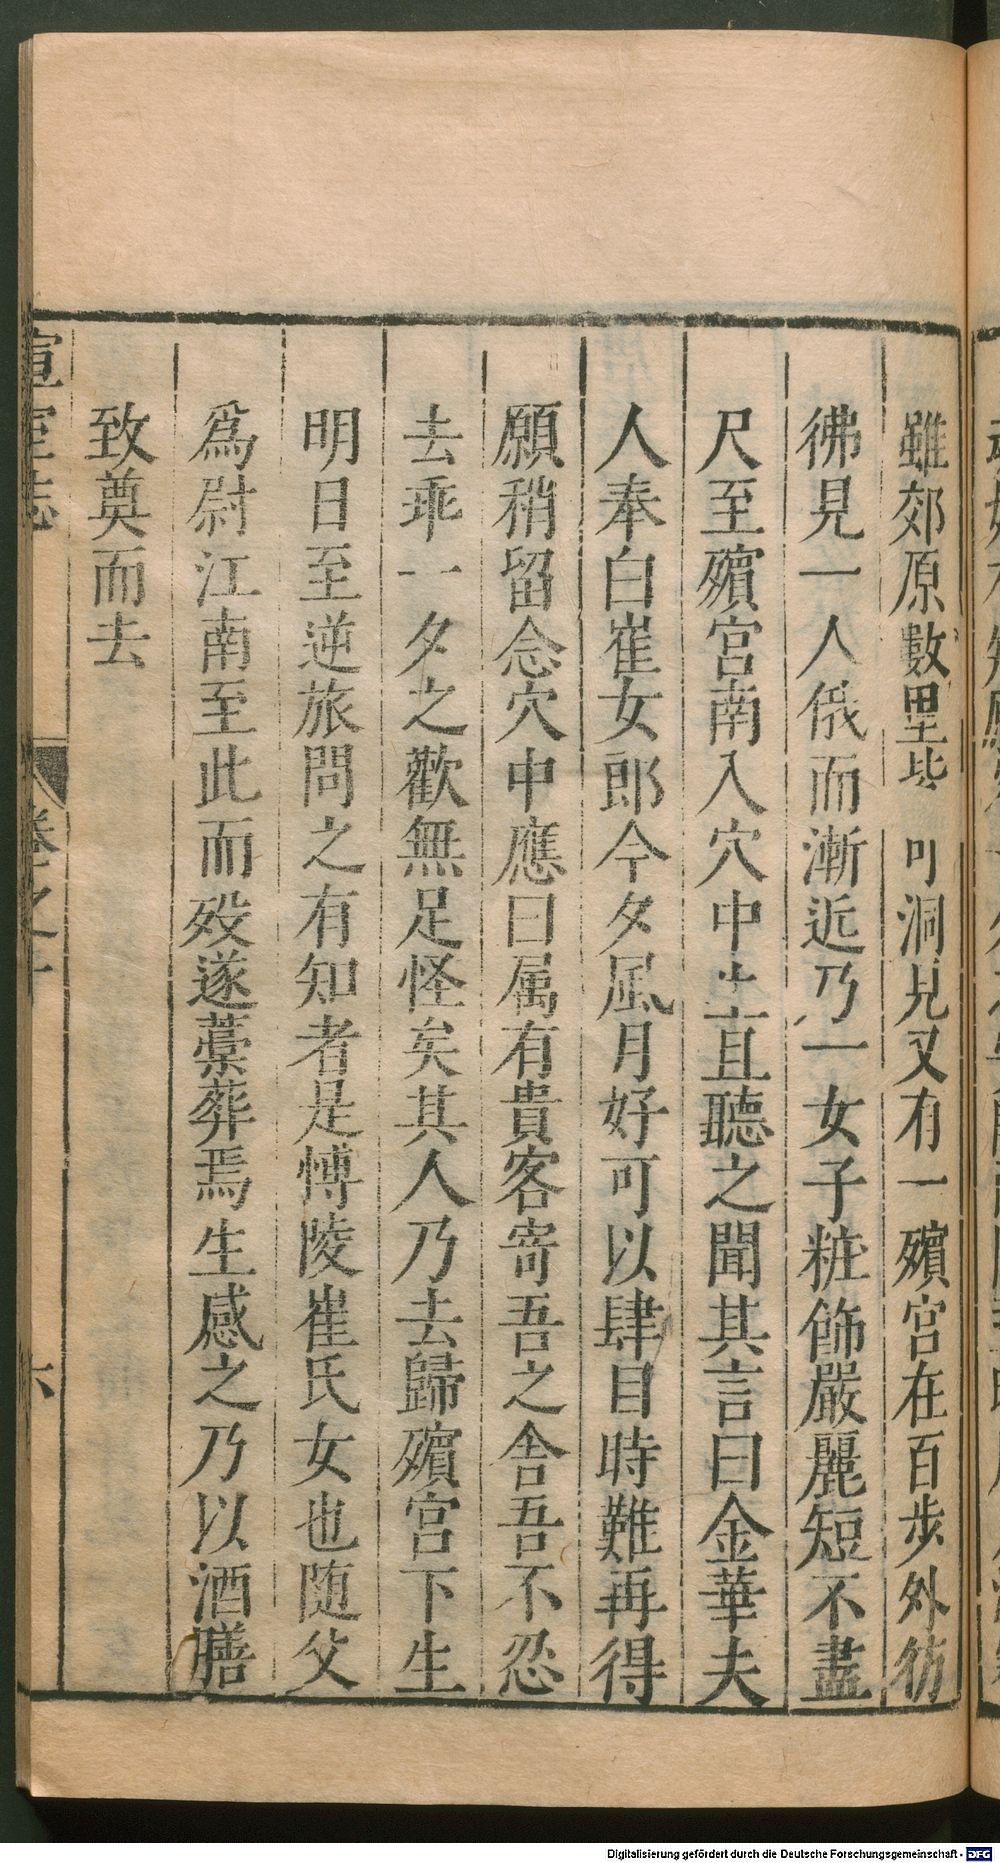 雖郊原數里皆可洞見又有一殯宮在百步外彷
彿見一人俄而漸近乃一女子粧飾嚴麗短不盡
尺至殯宮南入穴中生直聽之聞其言曰金華夫
人奉白崔女郎今夕風月好可以肆目時難再得
願稍留念穴中應曰属有貴客寄吾之舍吾不忍
去乖一夕之歡無足怪矣其人乃去歸殯宮下生
明日至逆旅問之有知者是愽陵崔氏女也随父
爲尉江南至此而歿遂藁葬焉生感之乃以酒膳
致奠而去
宣室志
卷之十
六
Digitalisierung gefördert durch die Deutsche Forschungsgemeinschaft - DFG